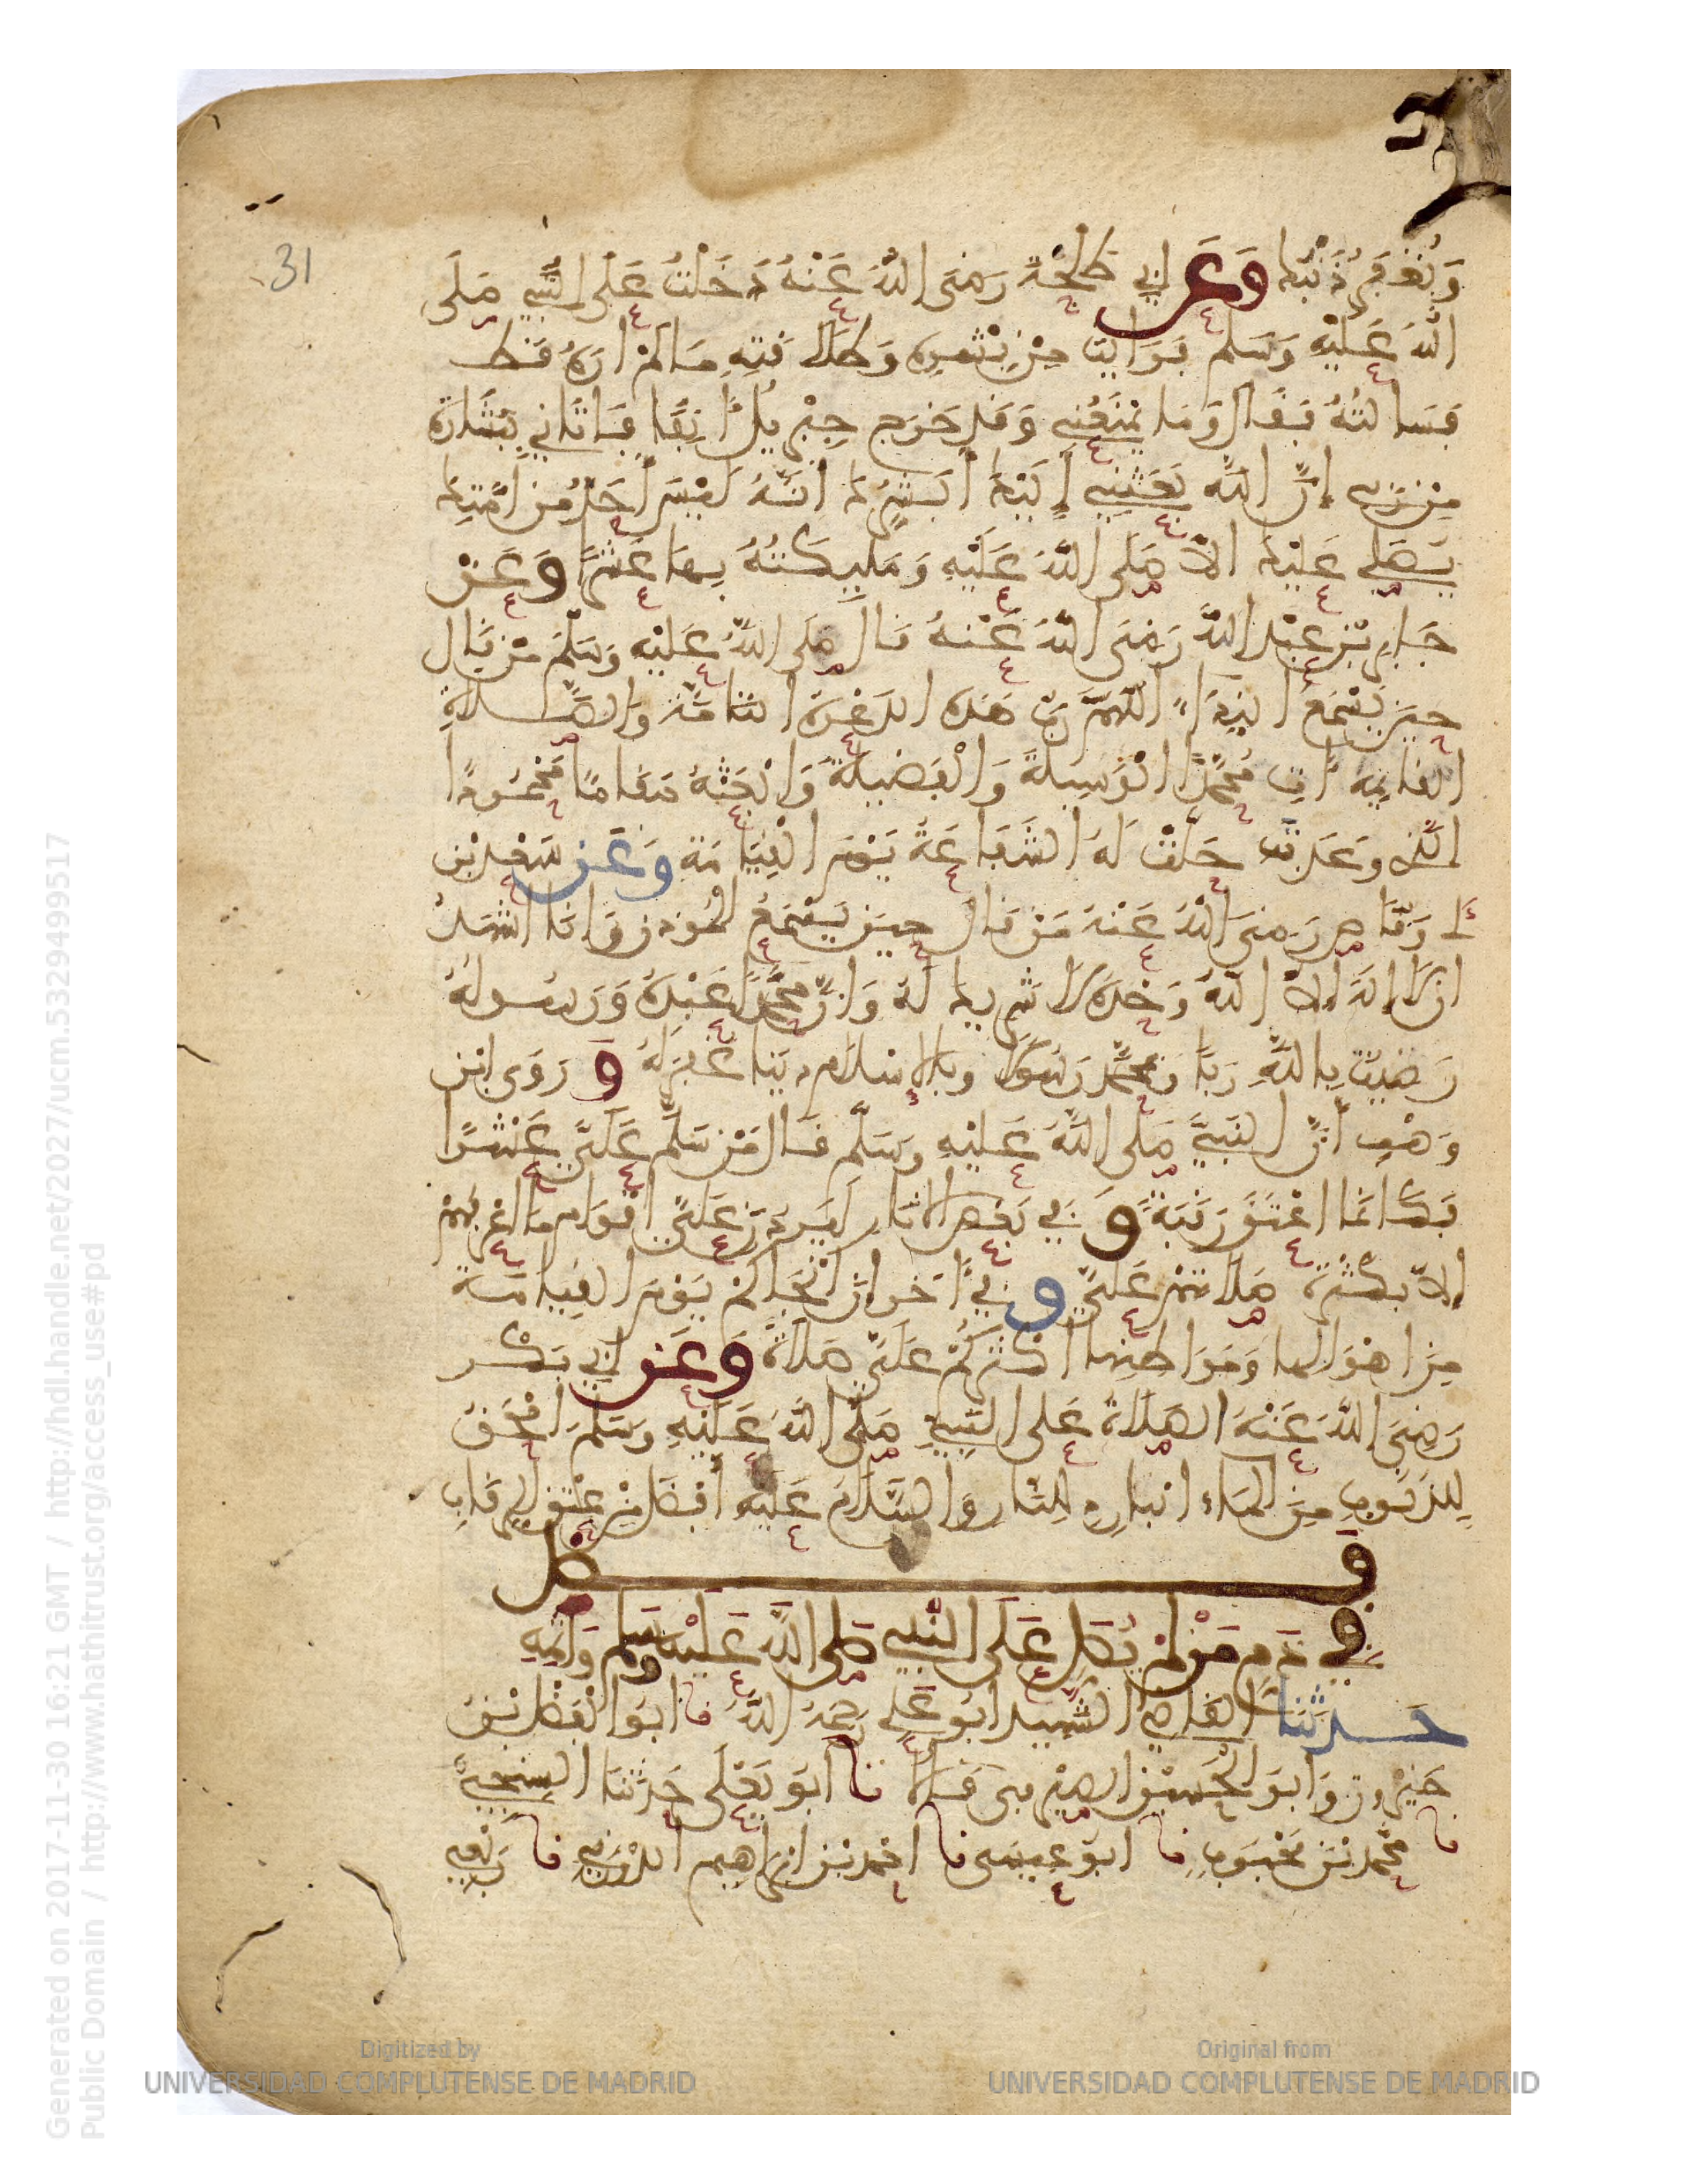 31
وَيُغْفَرُ ذَنْبُكَ وَعَن ابي طَلْحَةَ رَضِيَ اللَّهُ عَنْهُ دَخَلْتُ عَلَى النَّبِيِّ صَلَى
اللهُ عَلَيْهِ وَسَلم فَرَأيْتُ مِنْ بِشْرِهِ وَطَلَاقَتِهِ مَا لَمْ ارَهُ قَط
فَسَالتُهُ فَقَالَ وَمَا يَمْنَعُنِي وَقَد خَرَج جِبْرِيلُ ءَانِفًا فَاتَانِي بِبِشَارَة
مِنْ رَبِّي إِنَّ اللَّه بَعَثَنِي إِلَيْكَ أُبَشِّرُكَ انَّهُ لَيْسَ أَحَدٌ مِن أمَّتِكَ
يُصَلِي عَلَيْكَ الاَّ صَلَى اللَّهُ عَلَيْهِ وَمَلَيِكَتُهُ بِهَا عَشْرًا وَعَنْ
جَابِرِ بْنِ عَبْدِ اللَّه رَضِيَ اللَّهُ عَنْهُ قَالَ صَلَى اللَّهُ عَلَيْهِ وَسَلَّمَ مَنْ قَال
حِينَ يَسْمَعُ النِدَاءَ اللهُمَّ رَبَّ هَذِه الدَعْوَةِ التَامَّةِ وَالصَّلاةِ
القَايِمَة ءَاتِ مُحَمَّدًا الْوَسِيلَةَ وَالْفَضِيلَةَ وَابْعَثْهُ مَقَامًا مَّحْمُودًا
الَّذِي وَعَدتَّه حَلَّتْ لَهُ الشَفَاعَةُ يَوْمَ الْقِيَامَة وَعَن سَعْدِ بْن
أَبِي وَقَّاص رَضِيَ اللَّهُ عَنْهُ مَنْ قَالَ حِينَ يَسْمَعُ الْمُوَذِنَ وَانَا أشْهَدُ
ان لَا إلَهَ إلاَّ اللَّهُ وَحْدَهُ لَا شَرِيكَ لَهُ وَانَّ مُحَمَّدًا عَبْدُهُ وَرَسُولُهُ
رَضِيتُ بِاللَّهِ رَبًّا وَبِمُحَمَّد رَسُولًا وَبِالإسْلَامِ دِينًا غُفِرَ لَهُ وَ رَوَى ابْن
وَهْبٍ أَنَّ النَبِيَّ صَلَى اللَّهُ عَلَيْهِ وسَلَّم قَالَ مَنْ سَلَّمَ عَلَيَّ عَشْرًا
فَكَانَّمَا اعْتَقَ رَقَبَةً وَ فِي بَعْضِ الاثَارِ لَيَرِدَنَّ عَلَيَّ اقْوَام مَا اعْرِفُهُمْ
إلاَّ بِكَثْرَةِ صَلَاتِهِمْ عَلَيَّ وَ فِي ءَاخَر انَّ انْجَاكُمْ يَوْمَ القِيَامَة
مِنْ اهْوَالِهَا وَمَوَاطِنِهَا أَكْثَرُكُمْ عَلَيَّ صَلَاةً وَعَن ابِي بَكْر
رَضِيَ اللَّهُ عَنْهُ الصَلَاةُ عَلى النَّبِيّ صَلَّى اللَّهُ عَلَيْهِ وسَلَّمَ امْحَقُ
لِلذنُوبِ مِنَ الْمَاءِ الْبَارِدِ لِلنَّارِ وَالسَّلَامُ عَلَيْهِ أَفْضَل مِنْ عِتْقِ الرِقَابِ
فَصل
فِي ذَمِّ مَنْ لَمْ يُصَلِ عَلَى النَّبِيِّ صَلى اللَّهُ عَلَيْهِ وسَلم وَاثْمِهِ
حَدثَنَا القَاضِي الشَّهِيد ابُو عَلِي رَحِمَهُ اللَّهُ نا ابُو الْفَضْل بْنُ
خَيْرُون وَابُو الْحُسَيْنِ الصَيْرَفِيُّ قَالَا نا ابُو يَعْلَى حَدثَنَا السِنْجِيُّ
نا مُحَمَّد بْنُ مَحْبُوبٍ نا ابُو عِيسَى نا احْمَد بْنُ ابْرَاهِيمَ الدَّوْرَقِيّ نا رِبْعِيّ
Generated on 2017-11-30 16:21 GMT / http://hdl.handle.net/2027/ucm.5329499517
Public Domain / http://www.hathitrust.org/access_use#pd
Digitized by
UNIVERSIDAD COMPLUTENSE DE MADRID
Original from
UNIVERSIDAD COMPLUTENSE DE MADRID